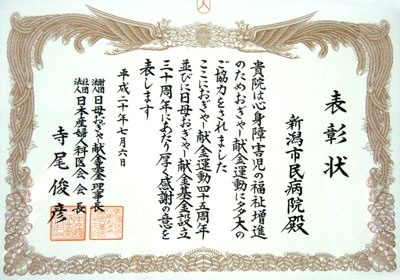 表彰状
新潟市民病院殿
貴院は心身障害児の福祉増進
のためおぎゃー献金運動に多大の
ご協力をされました
ここにおぎゃー献金運動四十五周年
並びに日母おぎゃー献金基金設立
三十周年にあたり厚く感謝の意を
表します
平成二十年七月六日
財団法人日母おぎゃー献金基金理事長
社団法人日本産婦人科医会会長
寺尾俊彦